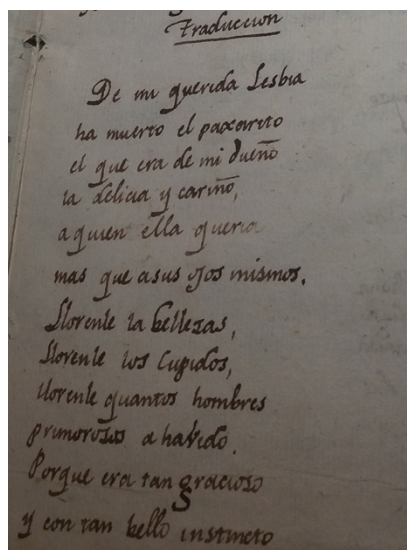 Traduccion
De mi querida Lesbia
ha muerto el paxarito
el que era de mi dueño
la delicia y cariño,
a quien ella queria
mas que a sus ojos mismos.
Llorenle la bellezas,
llorenle los Cupidos,
llorenle quantos hombres
primorosos a havido.
Porque era tan gracioso
y con tan bello instincto